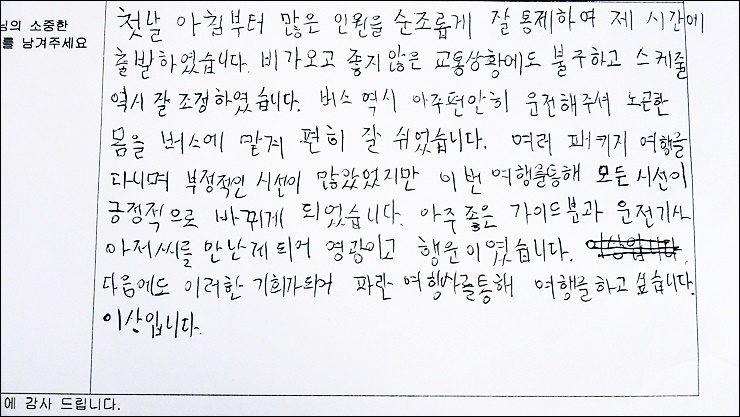 님의 소중한
를 남겨주세요
첫날 아침부터 많은 인원을 순조롭게 잘 통제하여 제 시간에
출발하였습니다. 비가오고 좋지않은 교통상황에도 불구하고 스케줄
역시 잘 조정하였습니다. 버스 역시 아주편안히 운전해주셔 노곤한
몸을 버스에 맡겨 편히 잘 쉬었습니다. 여러 패키지 여행를
다니며 부정적인 시선이 많았었지만 이번 여행를통해 모든시선이
긍정적으로 바뀌게 되었습니다. 아주좋은 가이드분과 운전기사
아저씨를 만난게 되어 영광이고 행운이였습니다. 이상입니다.
다음에도 이러한 기회가되어 파란 여행사를통해 여행를하고 싶습니다.
이상입니다.
에 감사 드립니다.